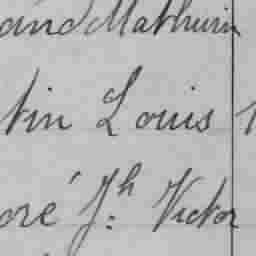 and Mathurin
tin Louis
oré J.h Victor